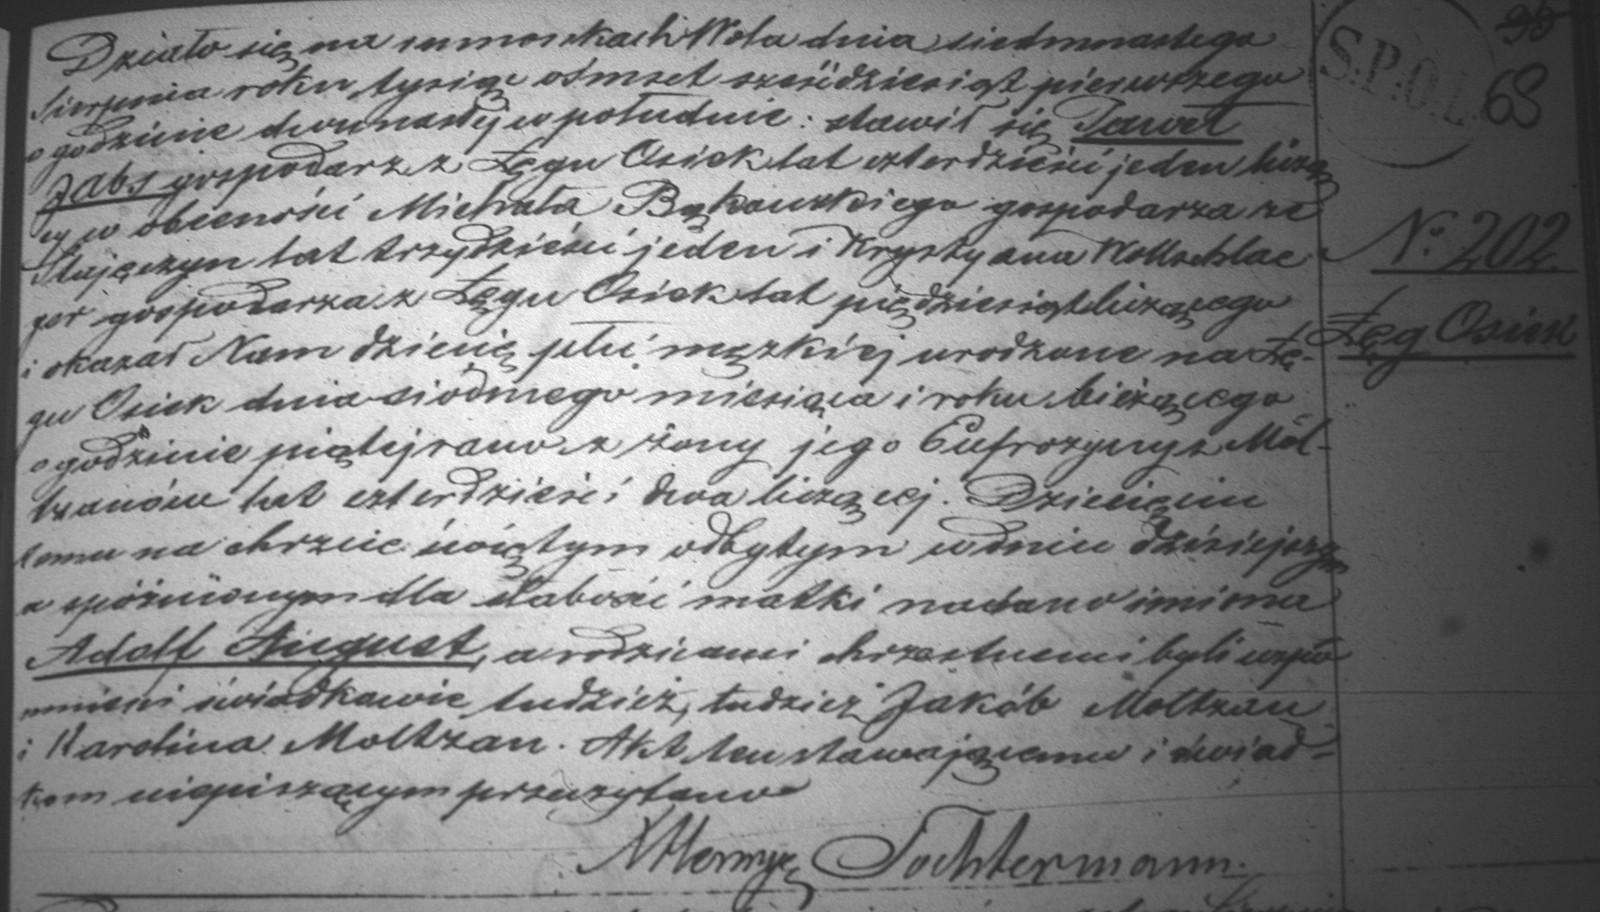 Działo się na rumoskach Wola dnia siedmnastego
Sierpnia roku tysiąc ośmset sześćdziesiąt pierwszego
o godzinie dwunastej w południe: stawił się Paweł
Jabs gospodarz z Łęgu Osiek lat czterdzieści jeden licżą
cy w obecności Michała Bąkowskiego gospodarza ze
lat trzydzieści jeden i Krystyana Wollschlae
ger gospodarza z Łęgu Osiek lat pięćdziesiąt liczącego
i okazał Nam dziecię płci męzkiej urodzone na Łę-
gu Osiek dnia siódmego miesiąca i roku bieżącego
o godzinie piątej rano z żony jego Eufrozyny z Mol-
tzanów lat czterdzieści dwa liczącej. Dziecięciu
temu na chrzcie świętym odbytym w dniu dzisiejszym
a spóźnionym dla słabości matki nadano imiona
Adolf August, a rodzicami chrzestnemi byli wspo
mnieni świadkowie tudzież, tudzież Jakób Moltzan
i Karolina Moltzan. Akt ten stawającemu i świad=
kom niepiszącym przeczytano
Tochtermann.
S.P.O.L.
96
68
No. 202.
Łęg Osiek